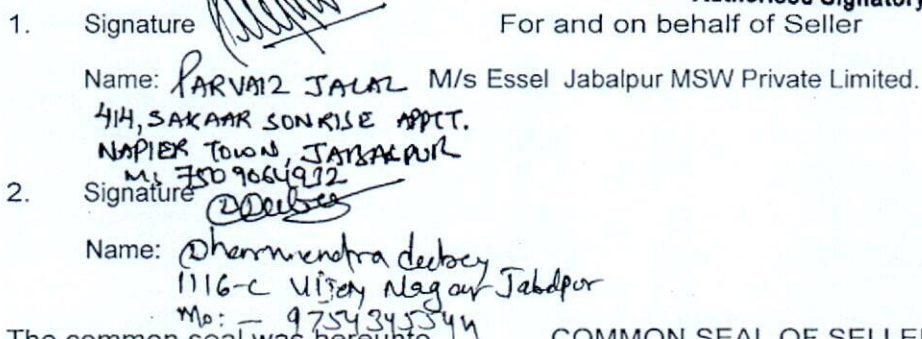 Authorised Signatory
1. Signature For and on behalf of Seller
Name: PARVAIZ JALAL M/s Essel Jabalpur MSW Private Limited.
414, SAKAAR SONRISE APPTT.
NAPIER TOWN, JABALPUR
M: 7509064912
2. Signature
Name: Dharmendra deebey
1116-C Vijay Nagar Jabalpur
Mo: - 9754345544
The common seal was hereunto COMMON SEAL OF SELLER